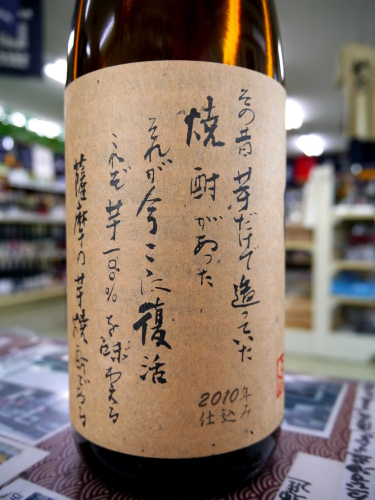 その昔 芋だけで造っていた
焼酎があった
それが今ここに復活
これぞ芋一〇〇%を味わえる
薩摩の芋焼酎である
2010年
仕込み